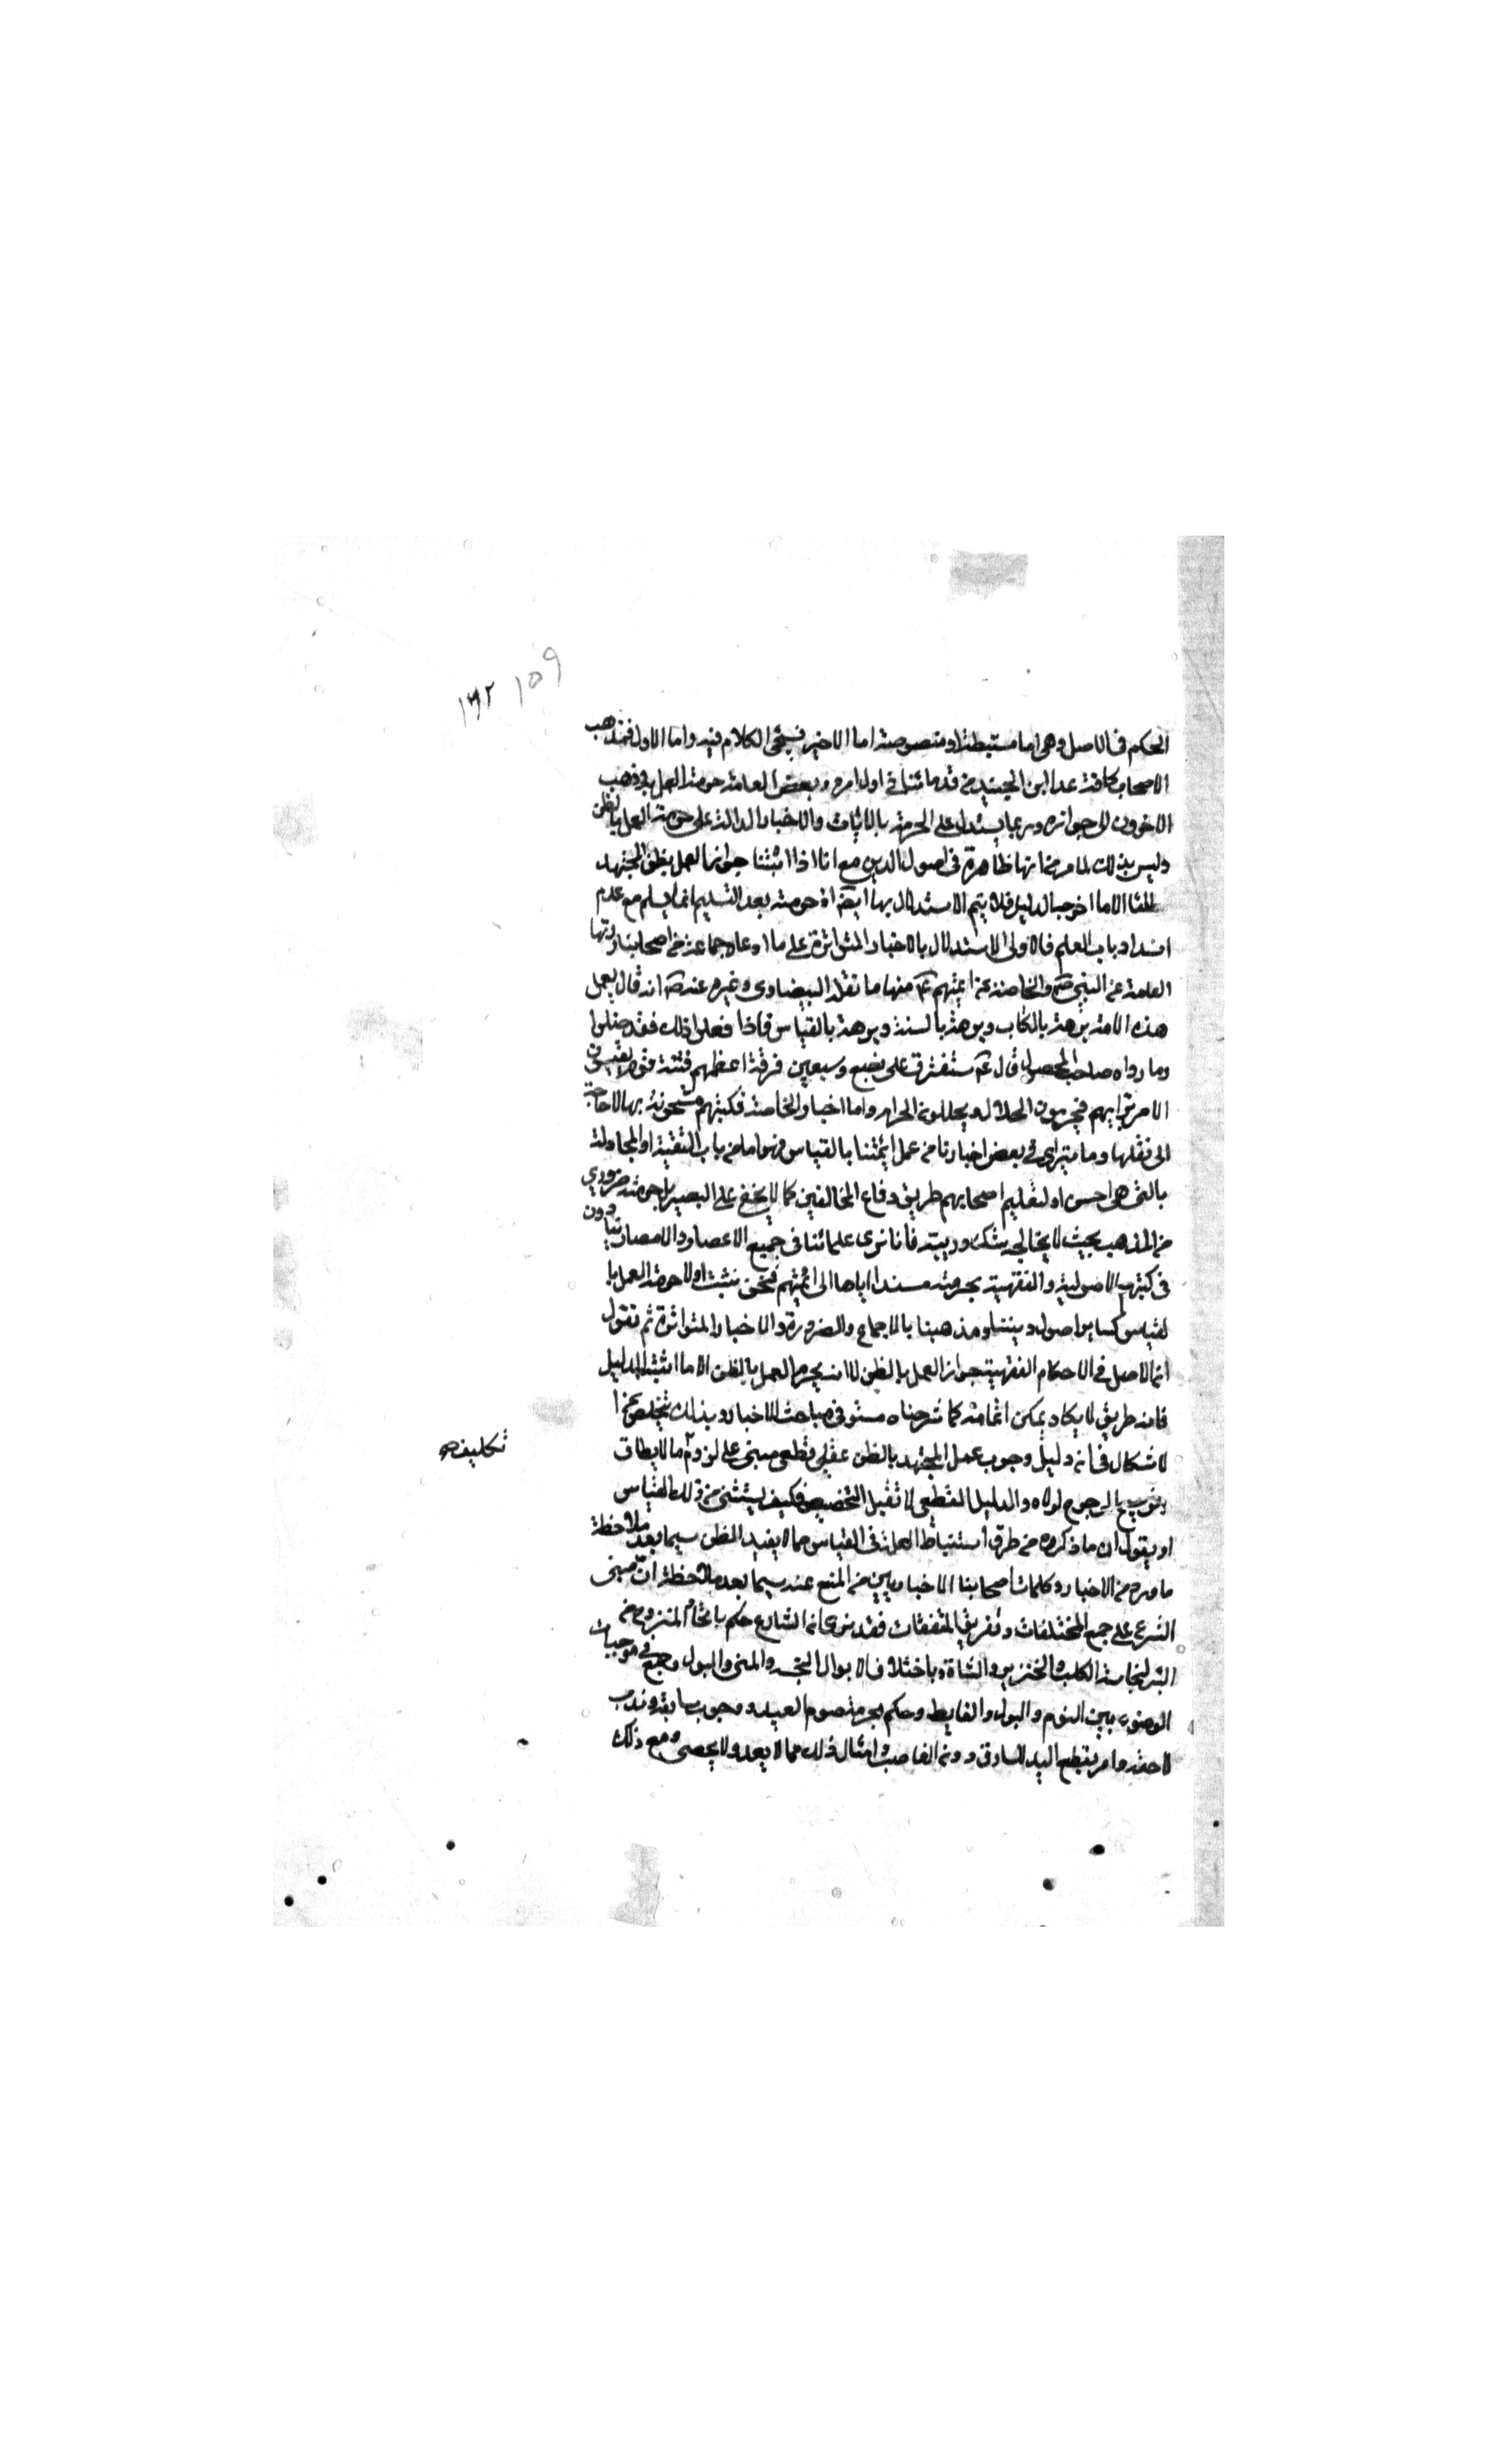 ١٥٩ ١٦٢
الحكم فى الاصل وهى اما مستنبطة او منصوصة اما الاخير فسيجئ الكلام فيه واما الاول فمذهب
الاصحاب كافة عدا ابن الجنيد من قدمائنا فى اول امره وبعض العامة حرمة العمل به وذهب
الاخرون الى جوازه وربما يستدل على الحرمة بالايات والاخبار الدالة على حرمة العمل بالظن
وليس بذلك لما مر من انها ظاهرة فى اصول الدين مع انا اذا اثبتنا جواز العمل بظن المجتهد
مطلقا الا ما اخرجه الدليل فلا يتم الاستدلال بها ايضا اذ حرمته بعد التسليم انما يسلم مع عدم
انسداد باب العلم فالاولى الاستدلال بالاخبار المتواترة على ما ادعاه جماعة من اصحابنا روتها
العامة عن النبى ص والخاصة عن ائمتهم ع منها ما نقله البيضاوى وغيره عنه ص انه قال يعمل
هذه الامة برهة بالكتاب وبرهة بالسنة وبرهة بالقياس فاذا فعلوا ذلك فقد ضلوا
وما رواه صاحب المحصول قال ع ستفترق على بضع وسبعين فرقة اعظمهم فتنة قوم يقيسون
الامر برايهم فيحرمون الحلال ويحللون الحرام واما اخبار الخاصة فكتبهم مشحونة بها لا حاجة
الى نقلها وما يترائ فى بعض اخبارنا من عمل ائمتنا بالقياس فهو اما من باب التقية او المجادلة
بالتى هى احسن او لتعليم اصحابهم طريق دفاع المخالفين كما لا يخفى على البصير بل حرمته ضرورى
من المذهب بحيث لا يخالجه شك وريبة فانا نرى علمائنا فى جميع الاعصار والامصار ينادون
فى كتبهم الاصولية والفقهية بحرمته مسندا اياها الى ائمتهم فنحن نثبت اولا حرمة العمل با
لقياس كساير اصول ديننا ومذهبنا بالاجماع والضرورة والاخبار المتواترة ثم نقول
ان الاصل فى الاحكام الفقهية جواز العمل بالظن لا انه يحرم العمل بالظن الا ما اثبته الدليل
فانه طريق لا يكاد يمكن اتمامه كما شرحناه مستوفى فى مباحث الاخبار وبذلك نتخلص عن ا
لاشكال فى ان دليل وجوب عمل المجتهد بالظن عقلى قطعى مبنى على لزوم ما لا يطاق
تكليف
المرجوح لولاه والدليل القطعى لا تقبل التخصيص فكيف يستثنى من ذلك القياس
او يقول ان ما ذكروه من طرق استنباط العلة فى القياس مما لا يفيد الظن سيما بعد ملاحظة
ما ورد من الاخبار وكلمات اصحابنا الاخباريين من المنع عنه سيما بعد ملاحظة ان مبنى
الشرع على جمع المختلفات وتفريق المتفقات فقد نرى ان الشارع حكم باتحاد المنزوح من
البئر لنجاسة الكلب والخنزير والشاة وباختلاف الابوال النجسة والمنى والبول وجمع فى موجبات
الوضوء بين النوم والبول والغايط وحكم بحرمة صوم العيد ووجوب سابقه وندب
لاحقه وامر بقطع اليد للسارق دون الغاصب وامثال ذلك مما لا يعد ولا يحصى ومع ذلك